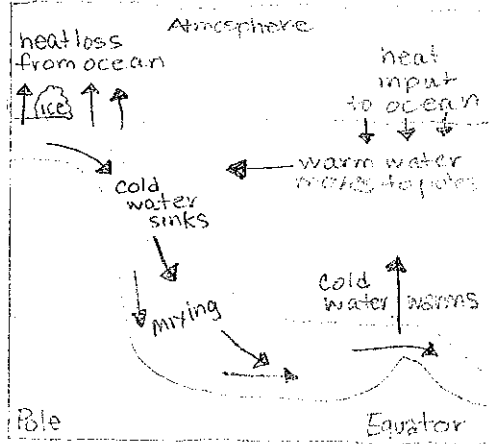 Atmosphere
heat loss
from ocean
ice
heat
input
to ocean
warm water
moves to poles
cold
water
sinks
mixing
cold
water warms
Pole
Equator